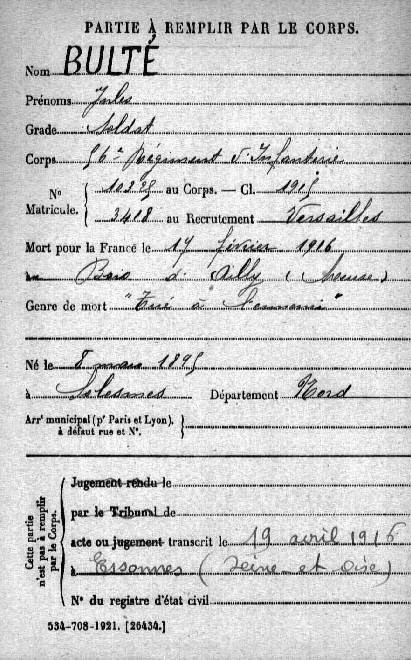 PARTIE À REMPLIR PAR LE CORPS.
Nom BULTÉ
Prénoms Jules
Grade Soldat
Corps 56e Régiment d'Infanterie
No Matricule. 10225 au Corps. — Cl. 1915
2418 au Recrutement Versailles
Mort pour la France le 17 février 1916
au Bois d'Ailly (Meuse)
Genre de mort "Tué à l'ennemi"
Né le 8 mars 1895
à Solesmes Département Nord
Arrt municipal (pr Paris et Lyon),
à défaut rue et No.
Cette partie n'est pas à remplir par le Corps.
Jugement rendu le
par le Tribunal de
acte ou jugement transcrit le 19 avril 1916
à Essonnes (Seine et Oise)
No du registre d'état civil
534-708-1921. [26434.]